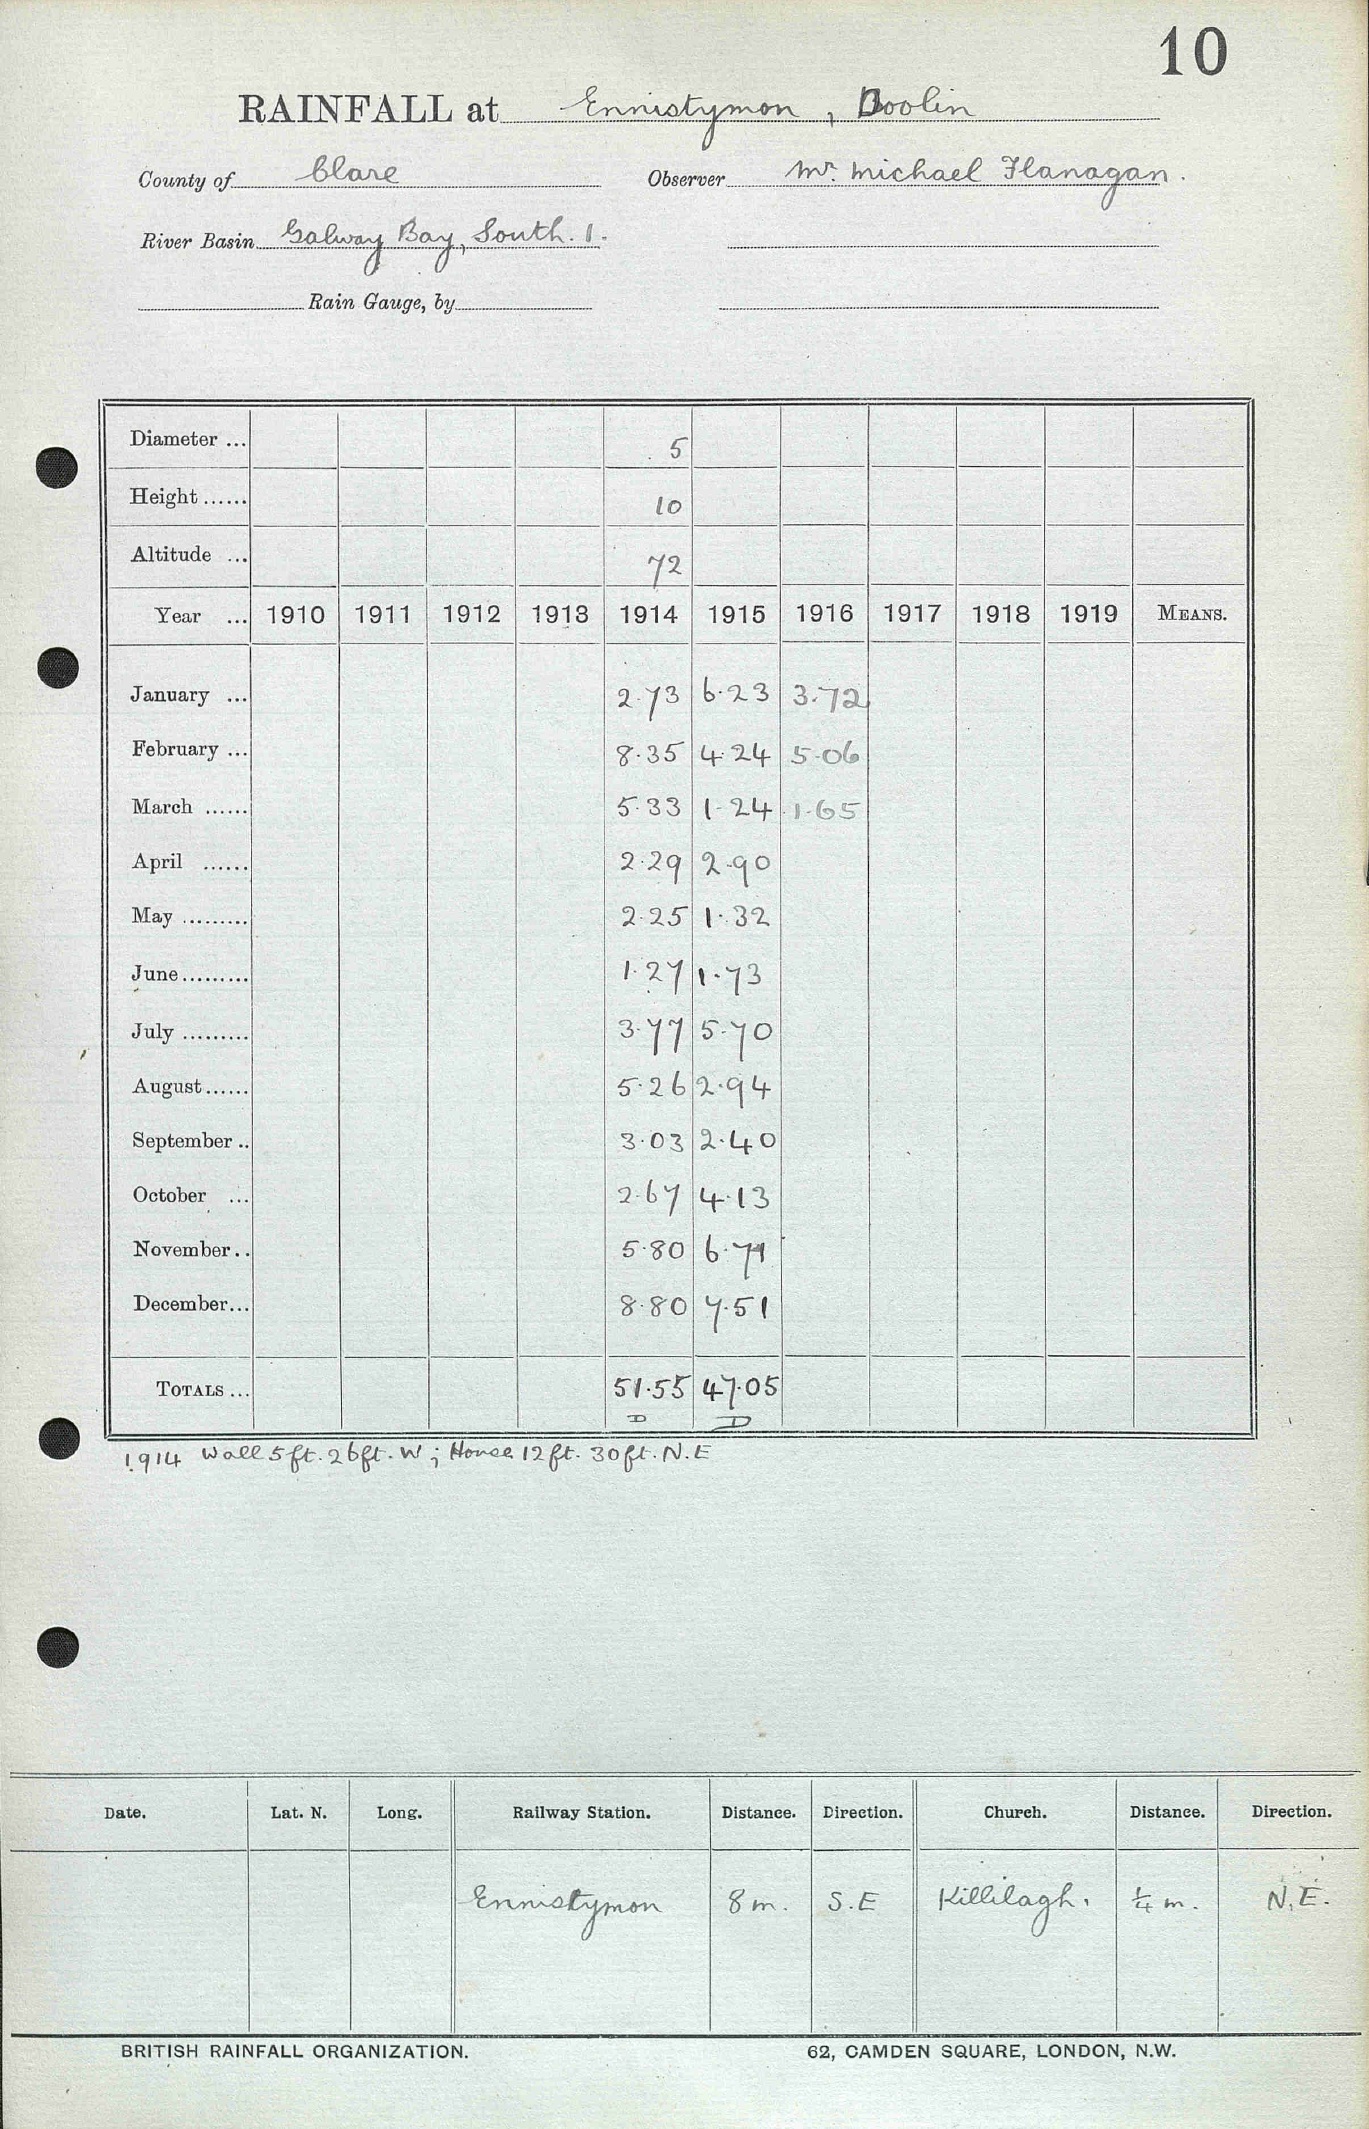 10
RAINFALL at Ennistymon, Doolin
County of Clare Observer Mr. Michael Flanagan.
River Basin Galway Bay, South. 1.
Rain Gauge, by
Diameter ... 5
Height ...... 10
Altitude ... 72
Year ... 1910 1911 1912 1913 1914 1915 1916 1917 1918 1919 MEANS.
January ... 2.73 6.23 3.72
February ... 8.35 4.24 5.06
March ...... 5.33 1.24 1.65
April ...... 2.29 2.90
May ......... 2.25 1.32
June ......... 1.27 1.73
July ......... 3.77 5.70
August ...... 5.26 2.94
September .. 3.03 2.40
October ... 2.67 4.13
November .. 5.80 6.71
December ... 8.80 7.51
TOTALS ... 51.55 47.05
D D
1914 Wall 5ft. 26ft. W; House 12ft. 30ft. N.E
Date. Lat. N. Long. Railway Station. Distance. Direction. Church. Distance. Direction.
Ennistymon 8 m. S.E Killilagh. ¼ m. N.E.
BRITISH RAINFALL ORGANIZATION. 62, CAMDEN SQUARE, LONDON, N.W.